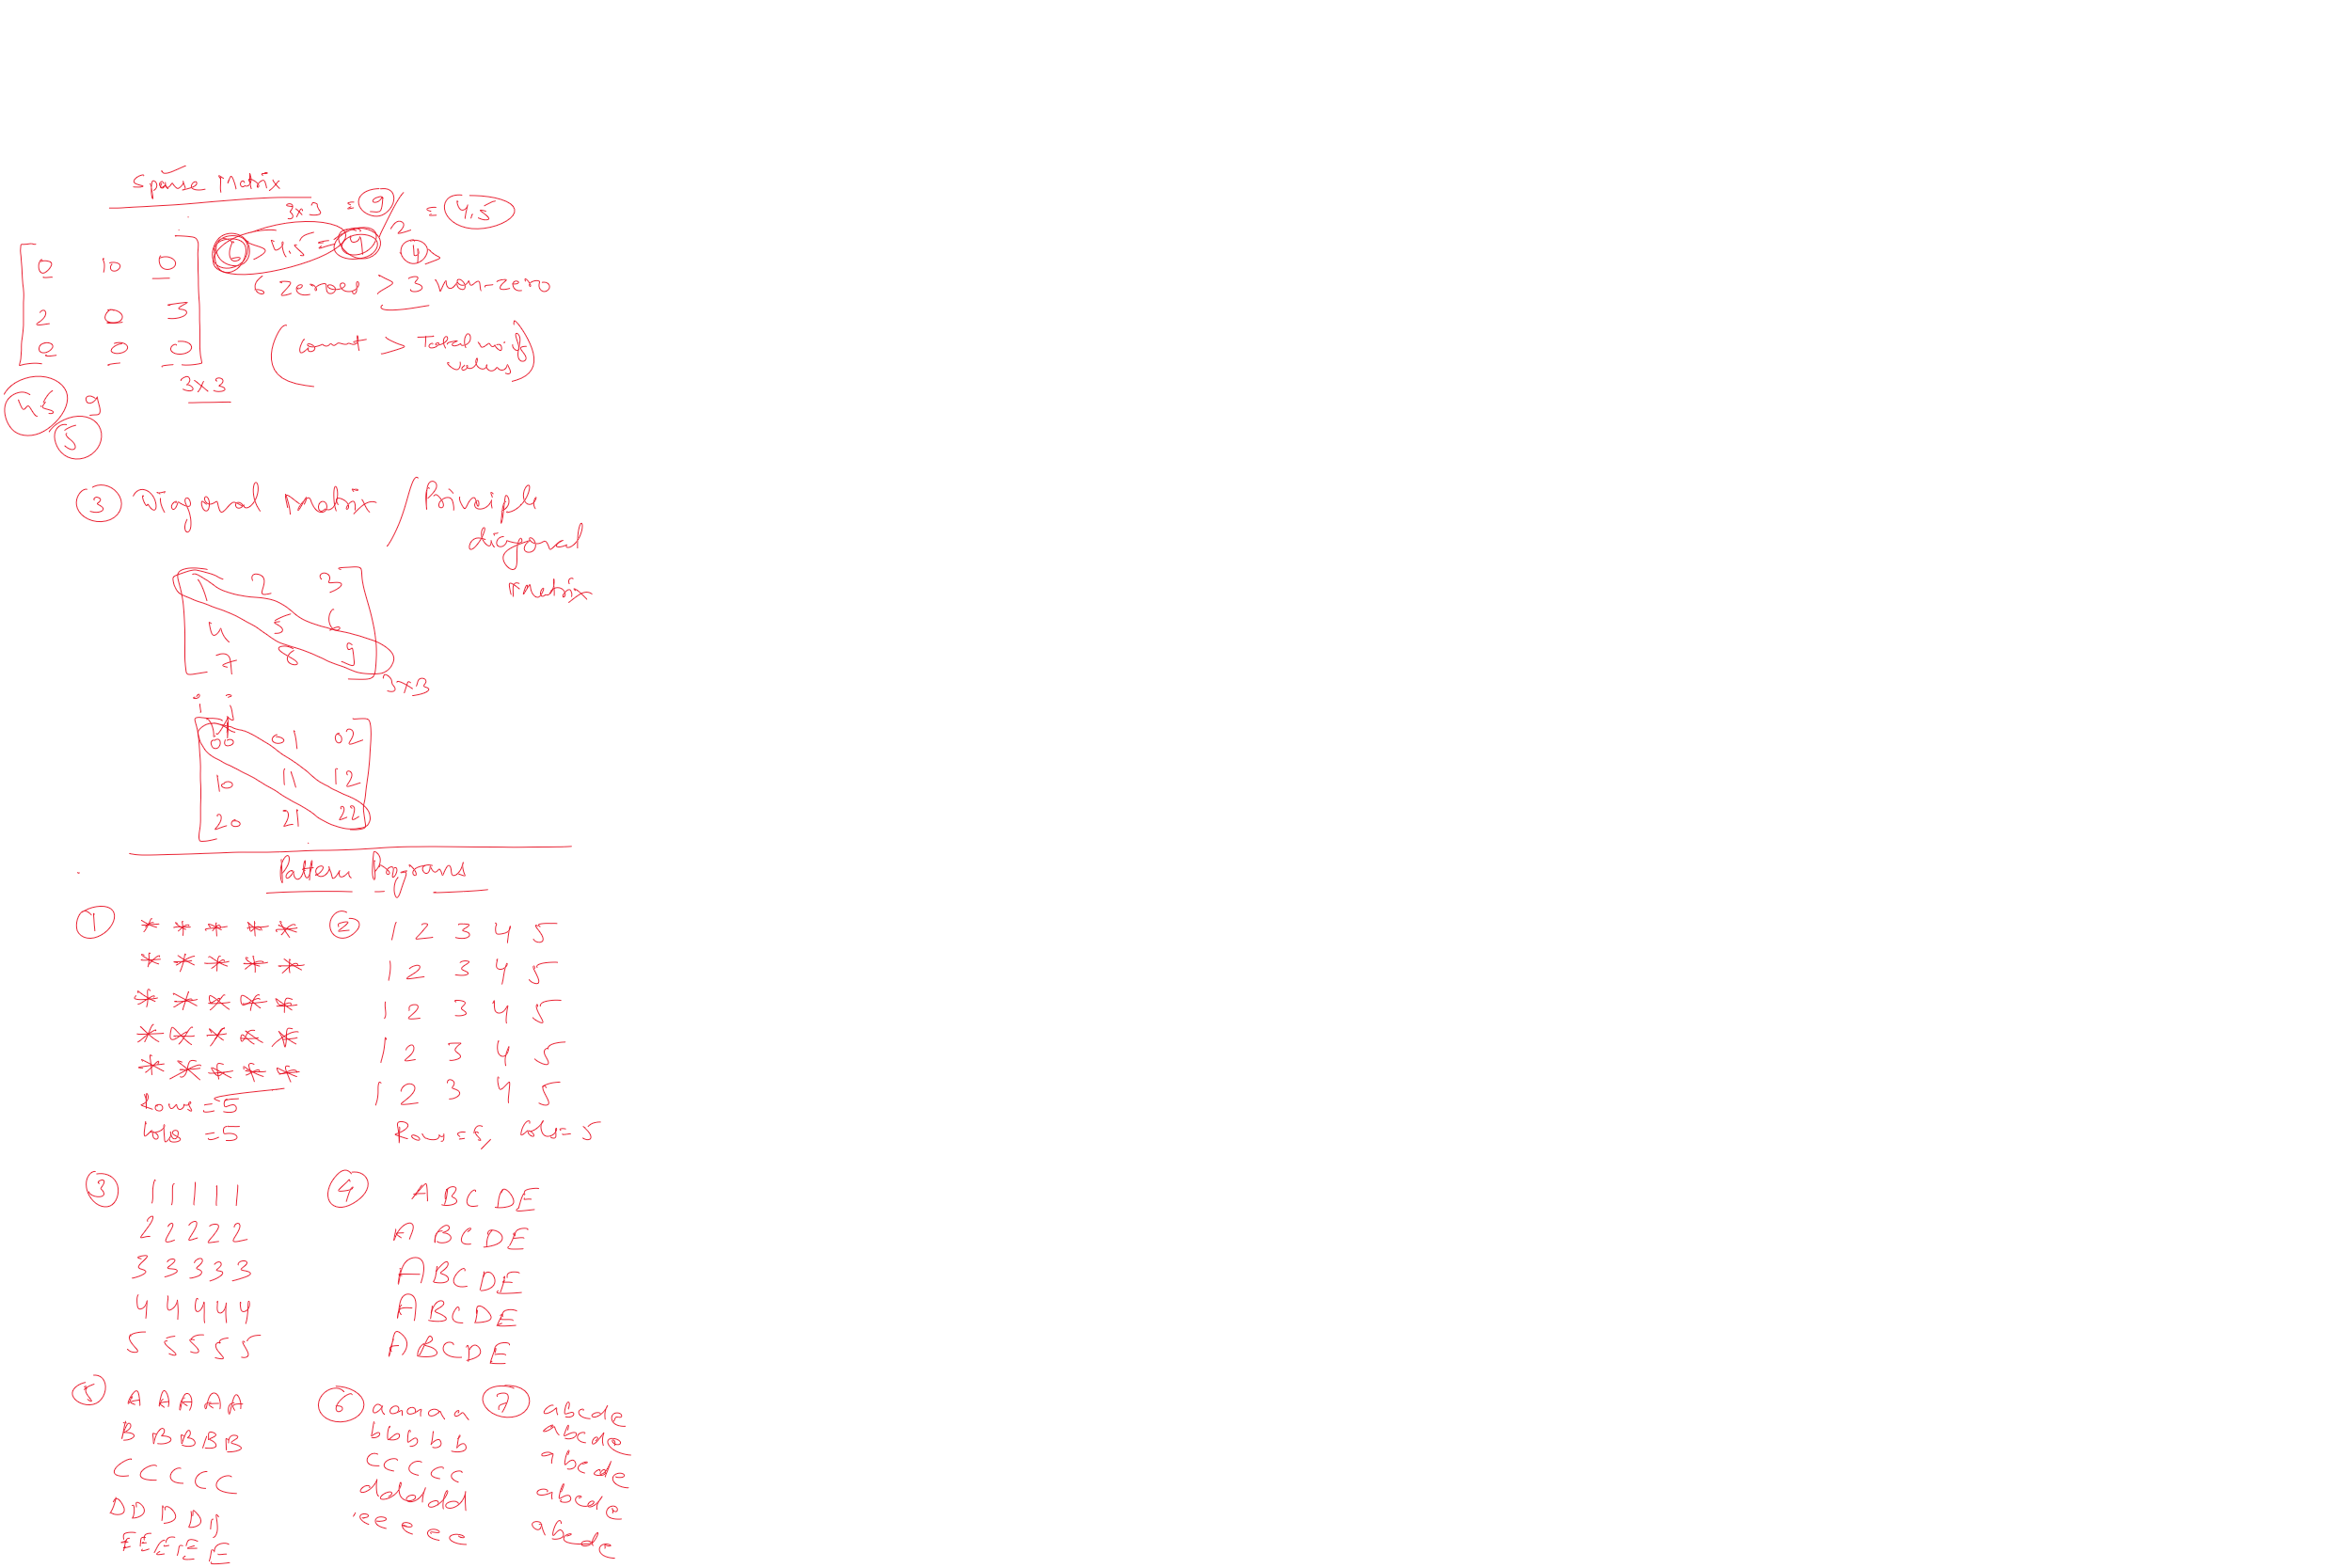 Sparse Matrix
3x3 = 9/2 = 4.5
6 > 4.5 = 4 4
0 10 0
6 zeroes > 3 non-zero
2 0 3
(count > Total no. of values)
0 0 0
3x3
4.5 9
5
③ Diagonal Matrix / Principle diagonal matrix
1 2 3
4 5 6
7 8 9
3x3
i j
00 01 02
10 11 12
20 21 22
Pattern Programs
① * * * * *
* * * * *
* * * * *
* * * * *
* * * * *
Rows = 5
Cols = 5
② 1 2 3 4 5
1 2 3 4 5
1 2 3 4 5
1 2 3 4 5
1 2 3 4 5
Rows = 5, Cols = 5
③ 1 1 1 1 1
2 2 2 2 2
3 3 3 3 3
4 4 4 4 4
5 5 5 5 5
④ A B C D E
A B C D E
A B C D E
A B C D E
A B C D E
⑤ A A A A A
B B B B B
C C C C C
D D D D D
E E E E E
⑥ a a a a a
b b b b b
c c c c c
d d d d d
e e e e e
⑦ a b c d e
a b c d e
a b c d e
a b c d e
a b c d e